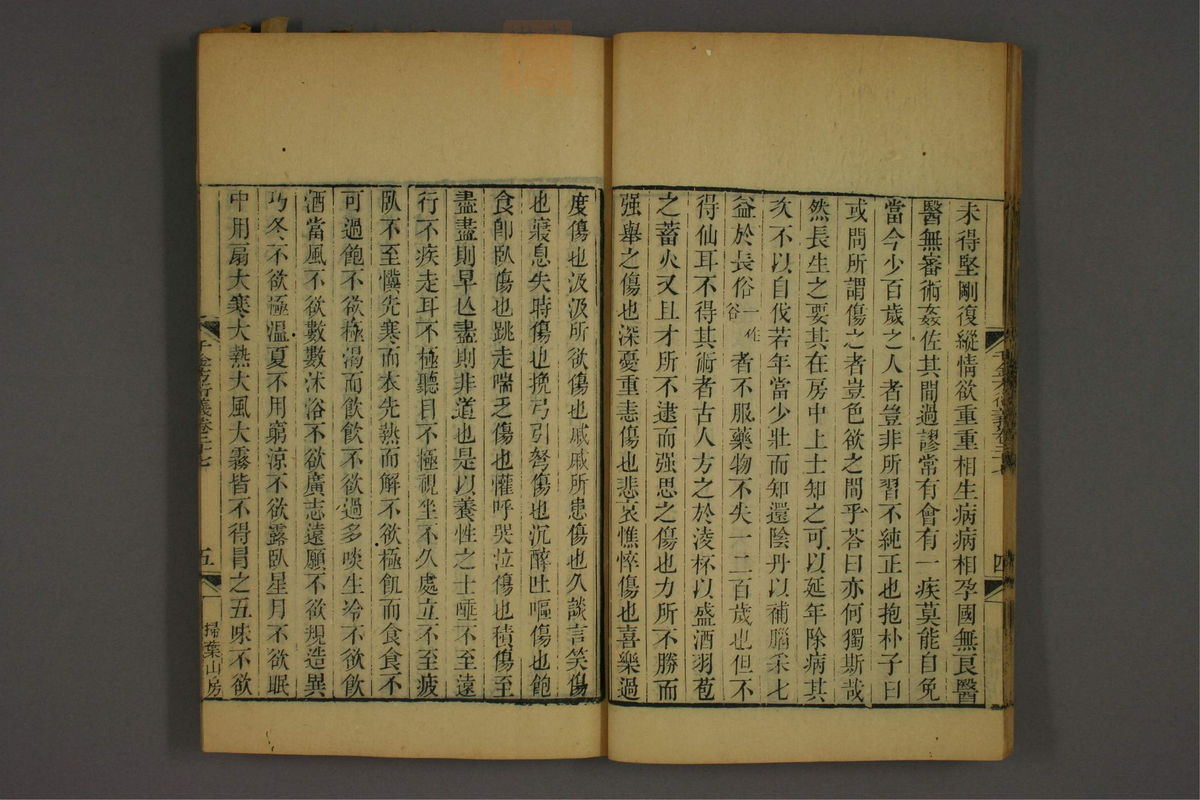 未得堅剛復縱情欲重重相生病病相孕國無良醫
醫無審術姦佐其間過謬常有會有一疾莫能自免
當今少百歲之人者豈非所習不純正也抱朴子曰
或問所謂傷之者豈色欲之間乎荅曰亦何獨斯哉
然長生之要其在房中上士知之可以延年除病其
次不以自伐若年當少壯而知還陰丹以補腦采七
益於長俗一作谷者不服藥物不失一二百歲也但不
得仙耳不得其術者古人方之於淩杯以盛酒羽苞
之蓄火又且才所不逮而强思之傷也力所不勝而
强舉之傷也深憂重恚傷也悲哀憔悴傷也喜樂過
千金方衍義卷二十七
四
度傷也汲汲所欲傷也戚戚所患傷也久談言笑傷
也寢息失時傷也挽弓引弩傷也沉醉吐嘔傷也飽
食卽臥傷也跳走喘乏傷也懽呼哭泣傷也積傷至
盡盡則早亾盡則非道也是以養性之士唾不至遠
行不疾走耳不極聽目不極視坐不久處立不至疲
臥不至懻先寒而衣先熱而解不欲極飢而食食不
可過飽不欲極渴而飮飮不欲過多啖生冷不欲飮
酒當風不欲數數沐浴不欲廣志遠願不欲規造異
巧冬不欲極溫夏不用窮涼不欲露臥星月不欲眠
中用扇大寒大熱大風大霧皆不得冐之五味不欲
千金方衍義卷二十七
五
掃葉山房